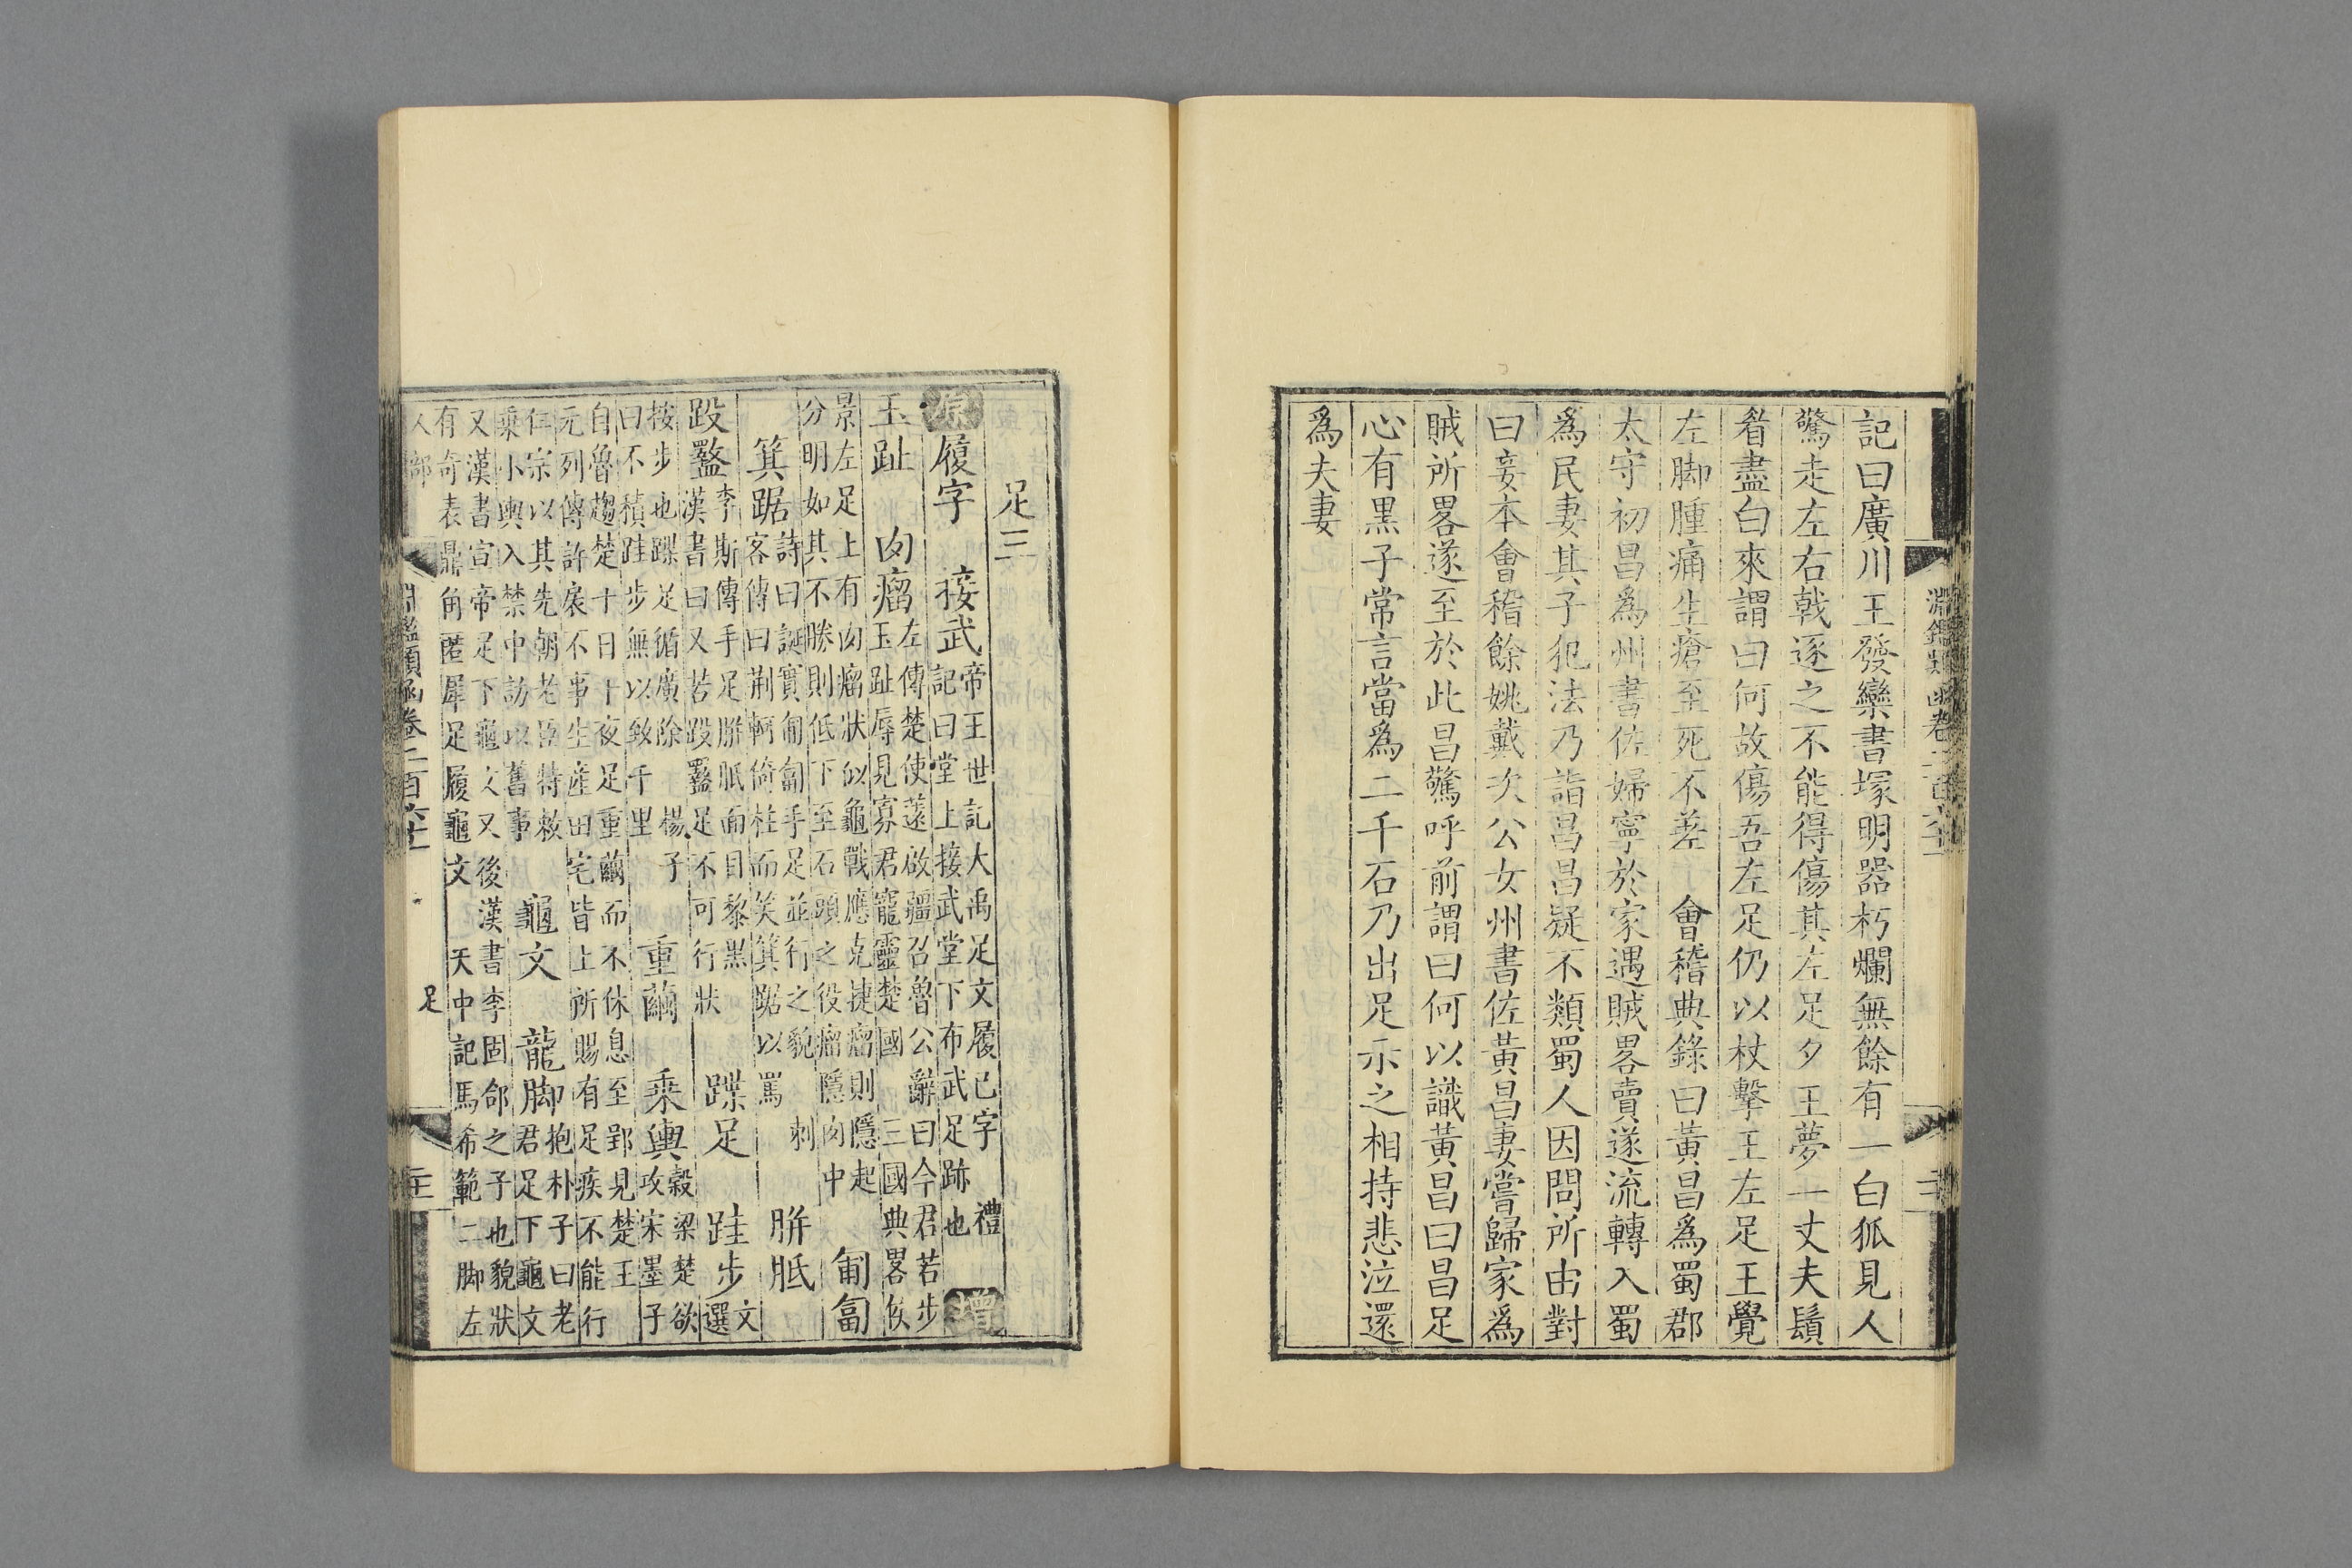 淵鑑類函卷二百六十
記曰廣川王發欒書塚明器朽爛無餘有一白狐見人
驚走左右戟逐之不能得傷其左足夕王夢一丈夫鬚
眉盡白來謂曰何故傷吾左足仍以杖擊王左足王覺
左脚腫痛生瘡至死不差 會稽典錄曰黃昌爲蜀郡
太守初昌爲州書佐婦寧於家遇賊畧賣遂流轉入蜀
爲民妻其子犯法乃詣昌昌疑不類蜀人因問所由對
曰妾本會稽餘姚戴次公女州書佐黃昌妻嘗歸家爲
賊所畧遂至於此昌驚呼前謂曰何以識黃昌曰昌足
心有黑子常言當爲二千石乃出足示之相持悲泣還
爲夫妻
足三
原 履字 接武 帝王世記大禹足文履已字 禮
記曰堂上接武堂下布武足跡也 增
玉趾 肉瘤 左傳楚使薳啟疆召魯公辭曰今君若步
玉趾辱見寡君寵靈楚國 三國典畧侯
景左足上有肉瘤狀似龜戰應克捷瘤則隱起
分明如其不勝則低下至石頭之役瘤隱肉中 匍匐
箕踞 詩曰誕實匍匐手足並行之貌 刺
客傳曰荆軻倚柱而笑箕踞以罵 胼胝
跤盭 李斯傳手足胼胝面目黎黑
漢書曰又若跤盭足不可行狀 蹀足 跬步 文
選
按步也蹀足循廣除 楊子
曰不積跬步無以致千里 重繭 乘輿 穀梁楚欲
攻宋墨子
自魯趨楚十日十夜足重繭而不休息至郢見楚王
元列傳許扆不事生產田宅皆上所賜有足疾不能行
仁宗以其先朝老臣特敕
乘小輿入禁中訪以舊事 龜文 龍脚 抱朴子曰老
君足下龜文
又漢書宣帝足下龜文 又後漢書李固郃之子也貌狀
有奇表鼎角匿犀足履龜文 天中記馬希範二脚左
人部 淵鑑類函卷二百六十 足